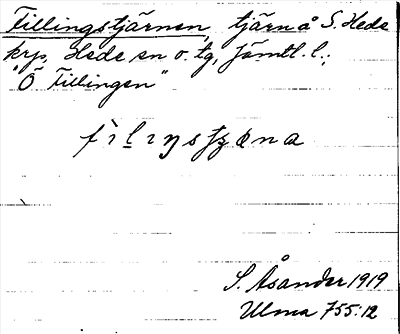 Fillingstjärnen, tjärn å S. Hede
krp, Hede sn o. tg, Jämtl. l.;
"Ö Fillingen"
fìlıŋstʐæna
S. Åsander 1919
Ulma 755:12